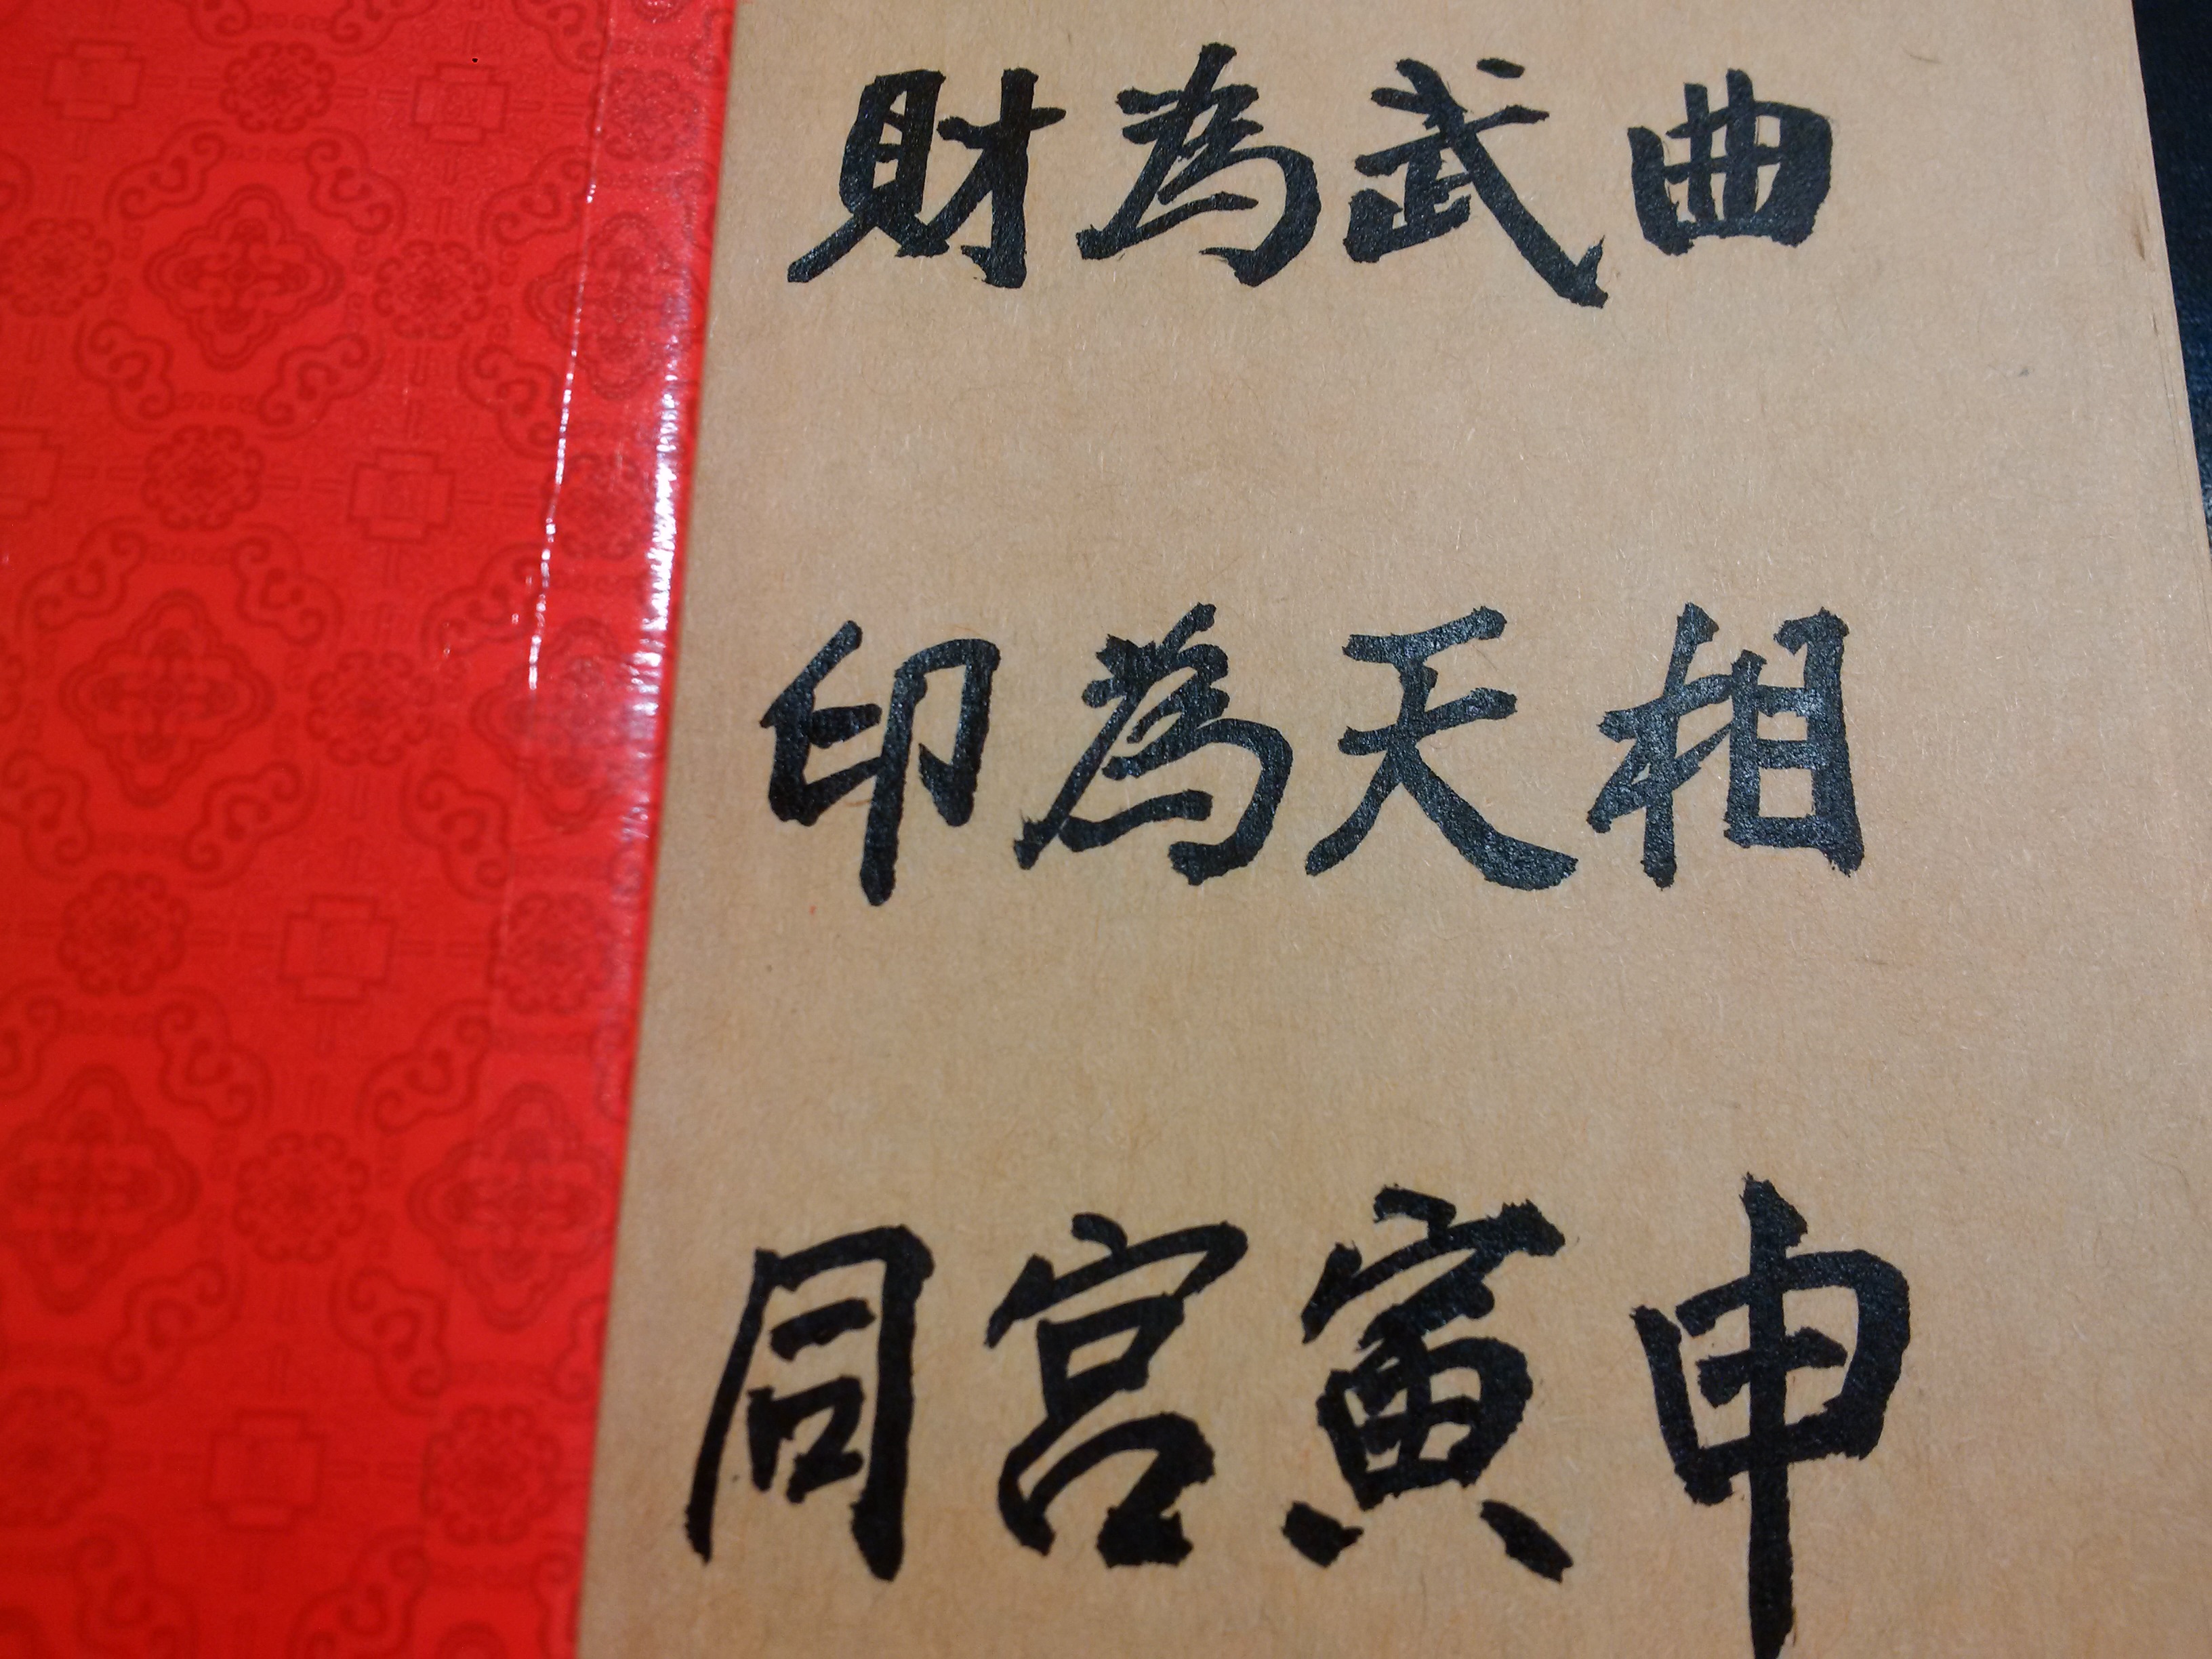 財為武曲
印為天相
同宮寅申